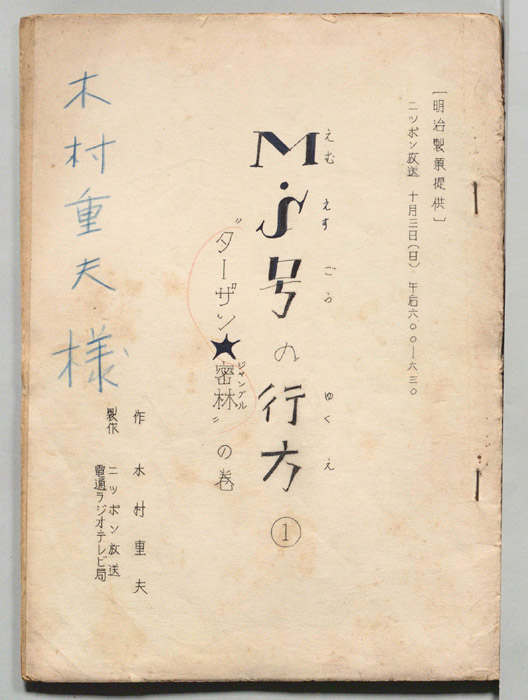 [明治製菓提供]
ニッポン放送 十月三日(日) 午后六〇〇―六三〇
えむ えす ごう ゆくえ
M・S号の行方 ①
ジャングル
"ターザン★密林"の巻
作 木村重夫
製作 ニッポン放送
電通ラジオテレビ局
木村重夫様